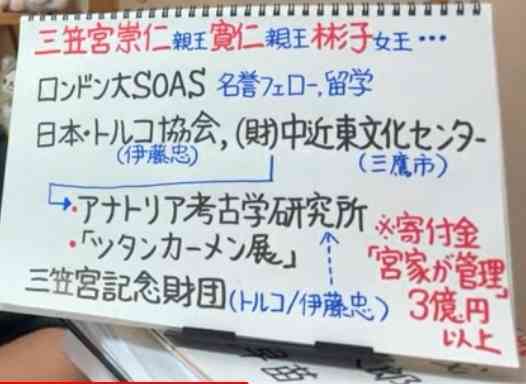 三笠宮崇仁親王寛仁親王彬子女王…
ロンドン大SOAS 名誉フェロー,留学
日本・トルコ協会,(財)中近東文化センター
(伊藤忠)
(三鷹市)
・アナトリア考古学研究所
・「ツタンカーメン展」
三笠宮記念財団(トルコ/伊藤忠)
※寄付金
「宮家が管理」
3億円
以上
早苗